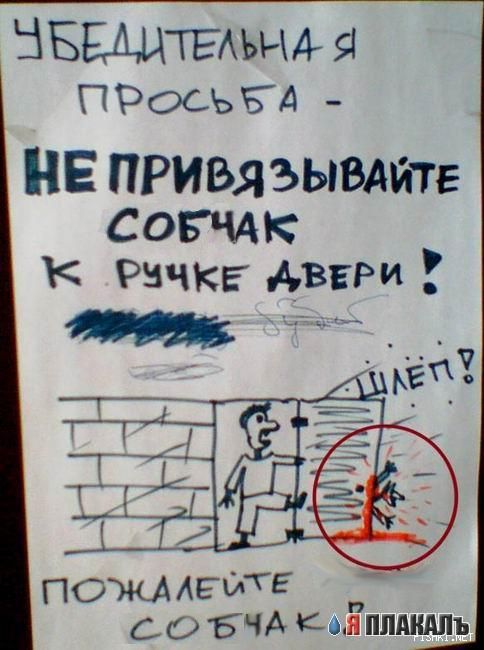 УБЕДИТЕЛЬНАЯ
ПРОСЬБА -
НЕ ПРИВЯЗЫВАЙТЕ
СОБЧАК
К РУЧКЕ ДВЕРИ!
ШЛЁП!
ПОЖАЛЕЙТЕ
СОБЧАК!
Я ПЛАКАЛЪ
FISHKI.NET